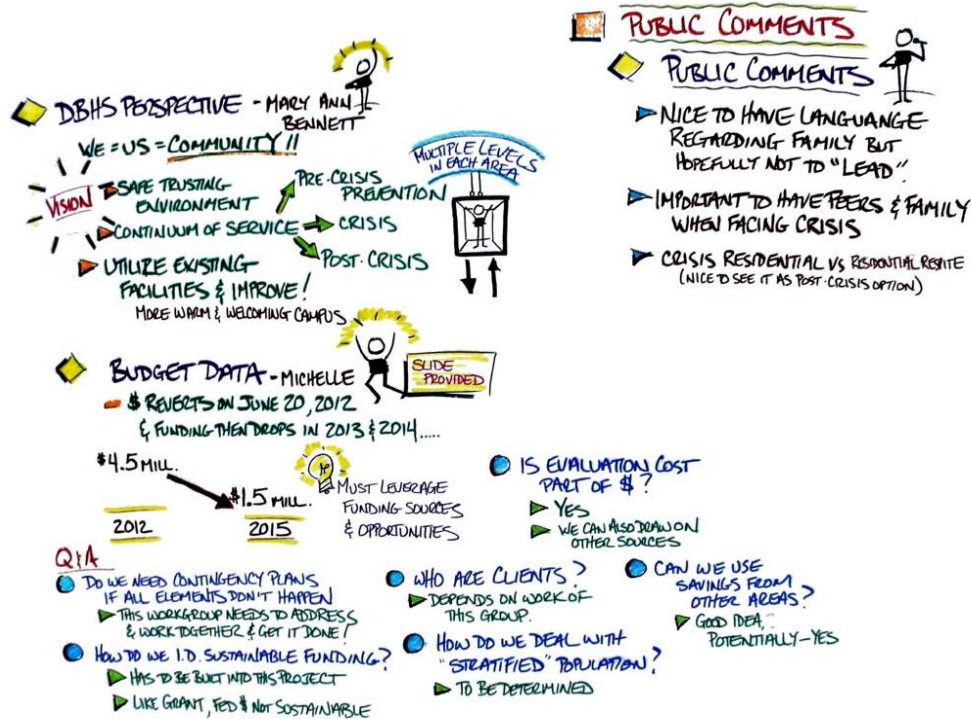 DBHS PERSPECTIVE - MARY ANN
BENNETT
WE = US = COMMUNITY !!
VISION
SAFE TRUSTING
ENVIRONMENT
CONTINUUM OF SERVICE
PRE-CRISIS
PREVENTION
CRISIS
POST-CRISIS
UTILIZE EXISTING
FACILITIES & IMPROVE!
MORE WARM & WELCOMING CAMPUS
MULTIPLE LEVELS
IN EACH AREA
BUDGET DATA - MICHELLE
SLIDE
PROVIDED
$ REVERTS ON JUNE 20, 2012
& FUNDING THEN DROPS IN 2013 & 2014.....
$4.5 MILL.
$1.5 MILL.
2012
2015
MUST LEVERAGE
FUNDING SOURCES
& OPPORTUNITIES
Q&A
DO WE NEED CONTINGENCY PLANS
IF ALL ELEMENTS DON'T HAPPEN
THIS WORKGROUP NEEDS TO ADDRESS
& WORK TOGETHER & GET IT DONE!
HOW DO WE I.D. SUSTAINABLE FUNDING?
HAS TO BE BUILT INTO THIS PROJECT
LIKE GRANT, FED $ NOT SUSTAINABLE
WHO ARE CLIENTS?
DEPENDS ON WORK OF
THIS GROUP.
HOW DO WE DEAL WITH
"STRATIFIED" POPULATION?
TO BE DETERMINED
IS EVALUATION COST
PART OF $?
YES
WE CAN ALSO DRAW ON
OTHER SOURCES
CAN WE USE
SAVINGS FROM
OTHER AREAS?
GOOD IDEA,
POTENTIALLY - YES
PUBLIC COMMENTS
PUBLIC COMMENTS
NICE TO HAVE LANGUANGE
REGARDING FAMILY BUT
HOPEFULLY NOT TO "LEAD".
IMPORTANT TO HAVE PEERS & FAMILY
WHEN FACING CRISIS
CRISIS RESIDENTIAL VS RESIDENTIAL RESPITE
(NICE TO SEE IT AS POST-CRISIS OPTION)